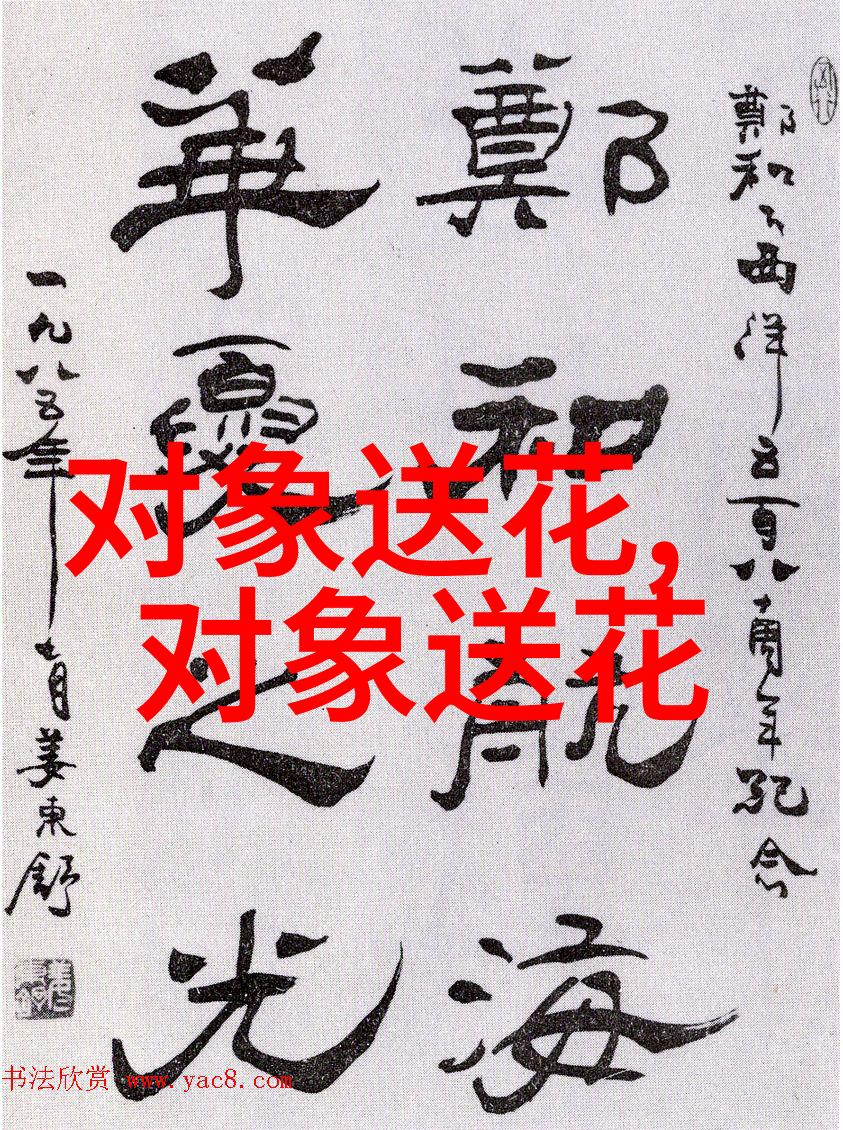 鄭和下西洋五百八十周年紀念
鄭和航海
華夏之光
一九八五年七月姜東舒
对象送花,
对象送花
书法欣赏 www.yac8.com